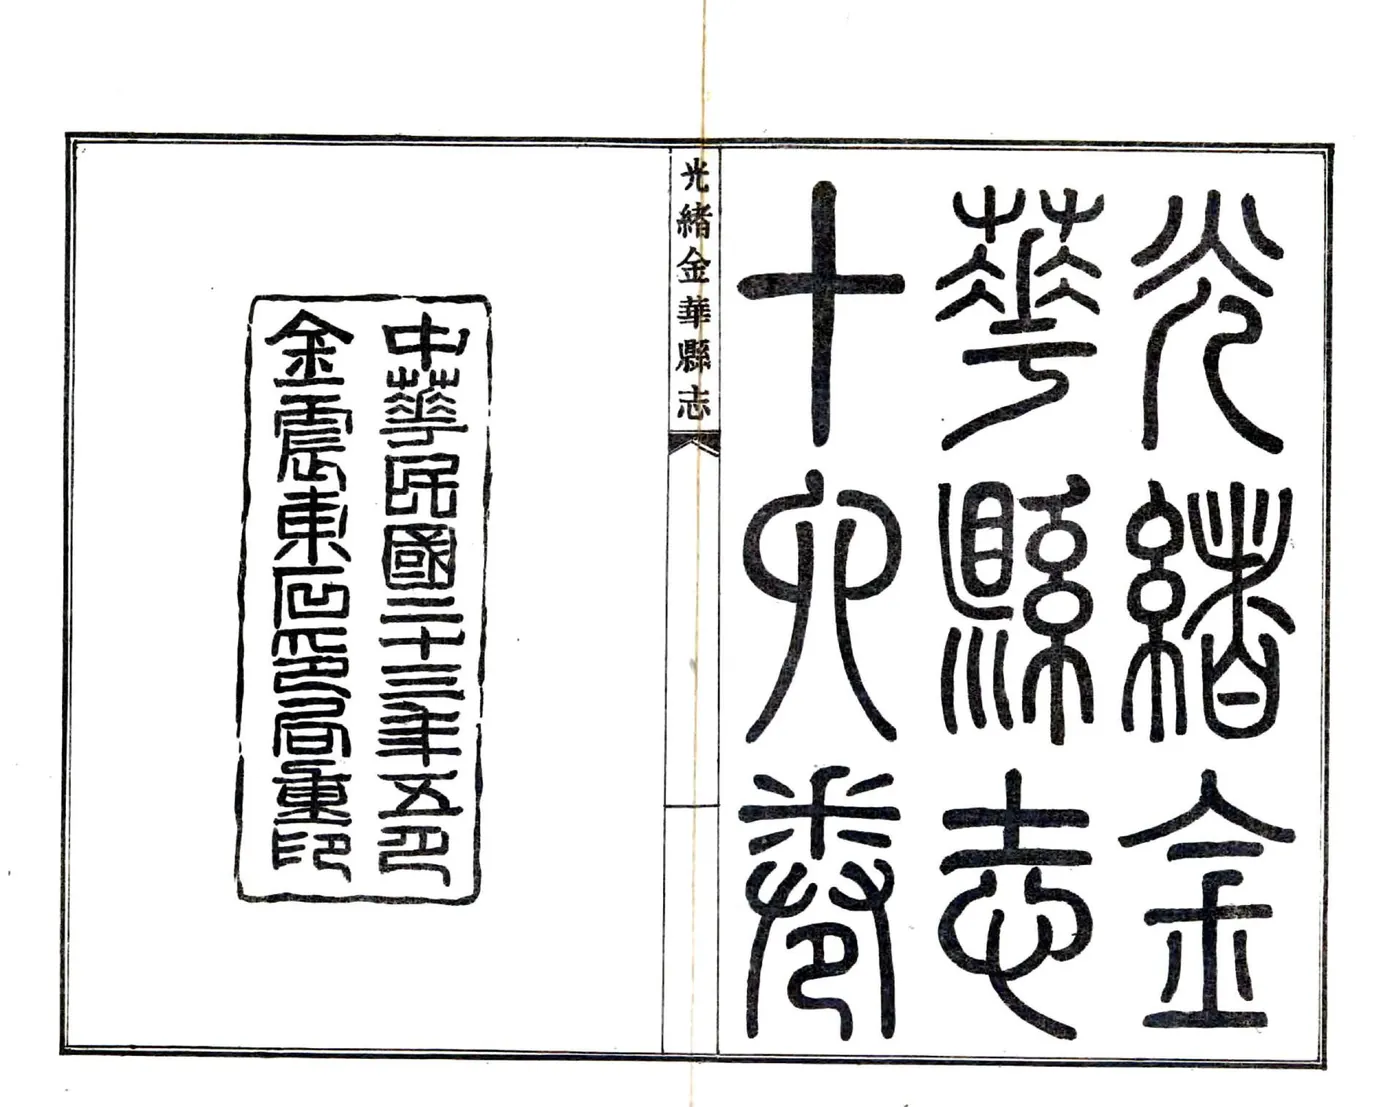 光緒金
華縣志
十六卷
光緒金華縣志
中華民國二十三年五月
金震東石印局重印